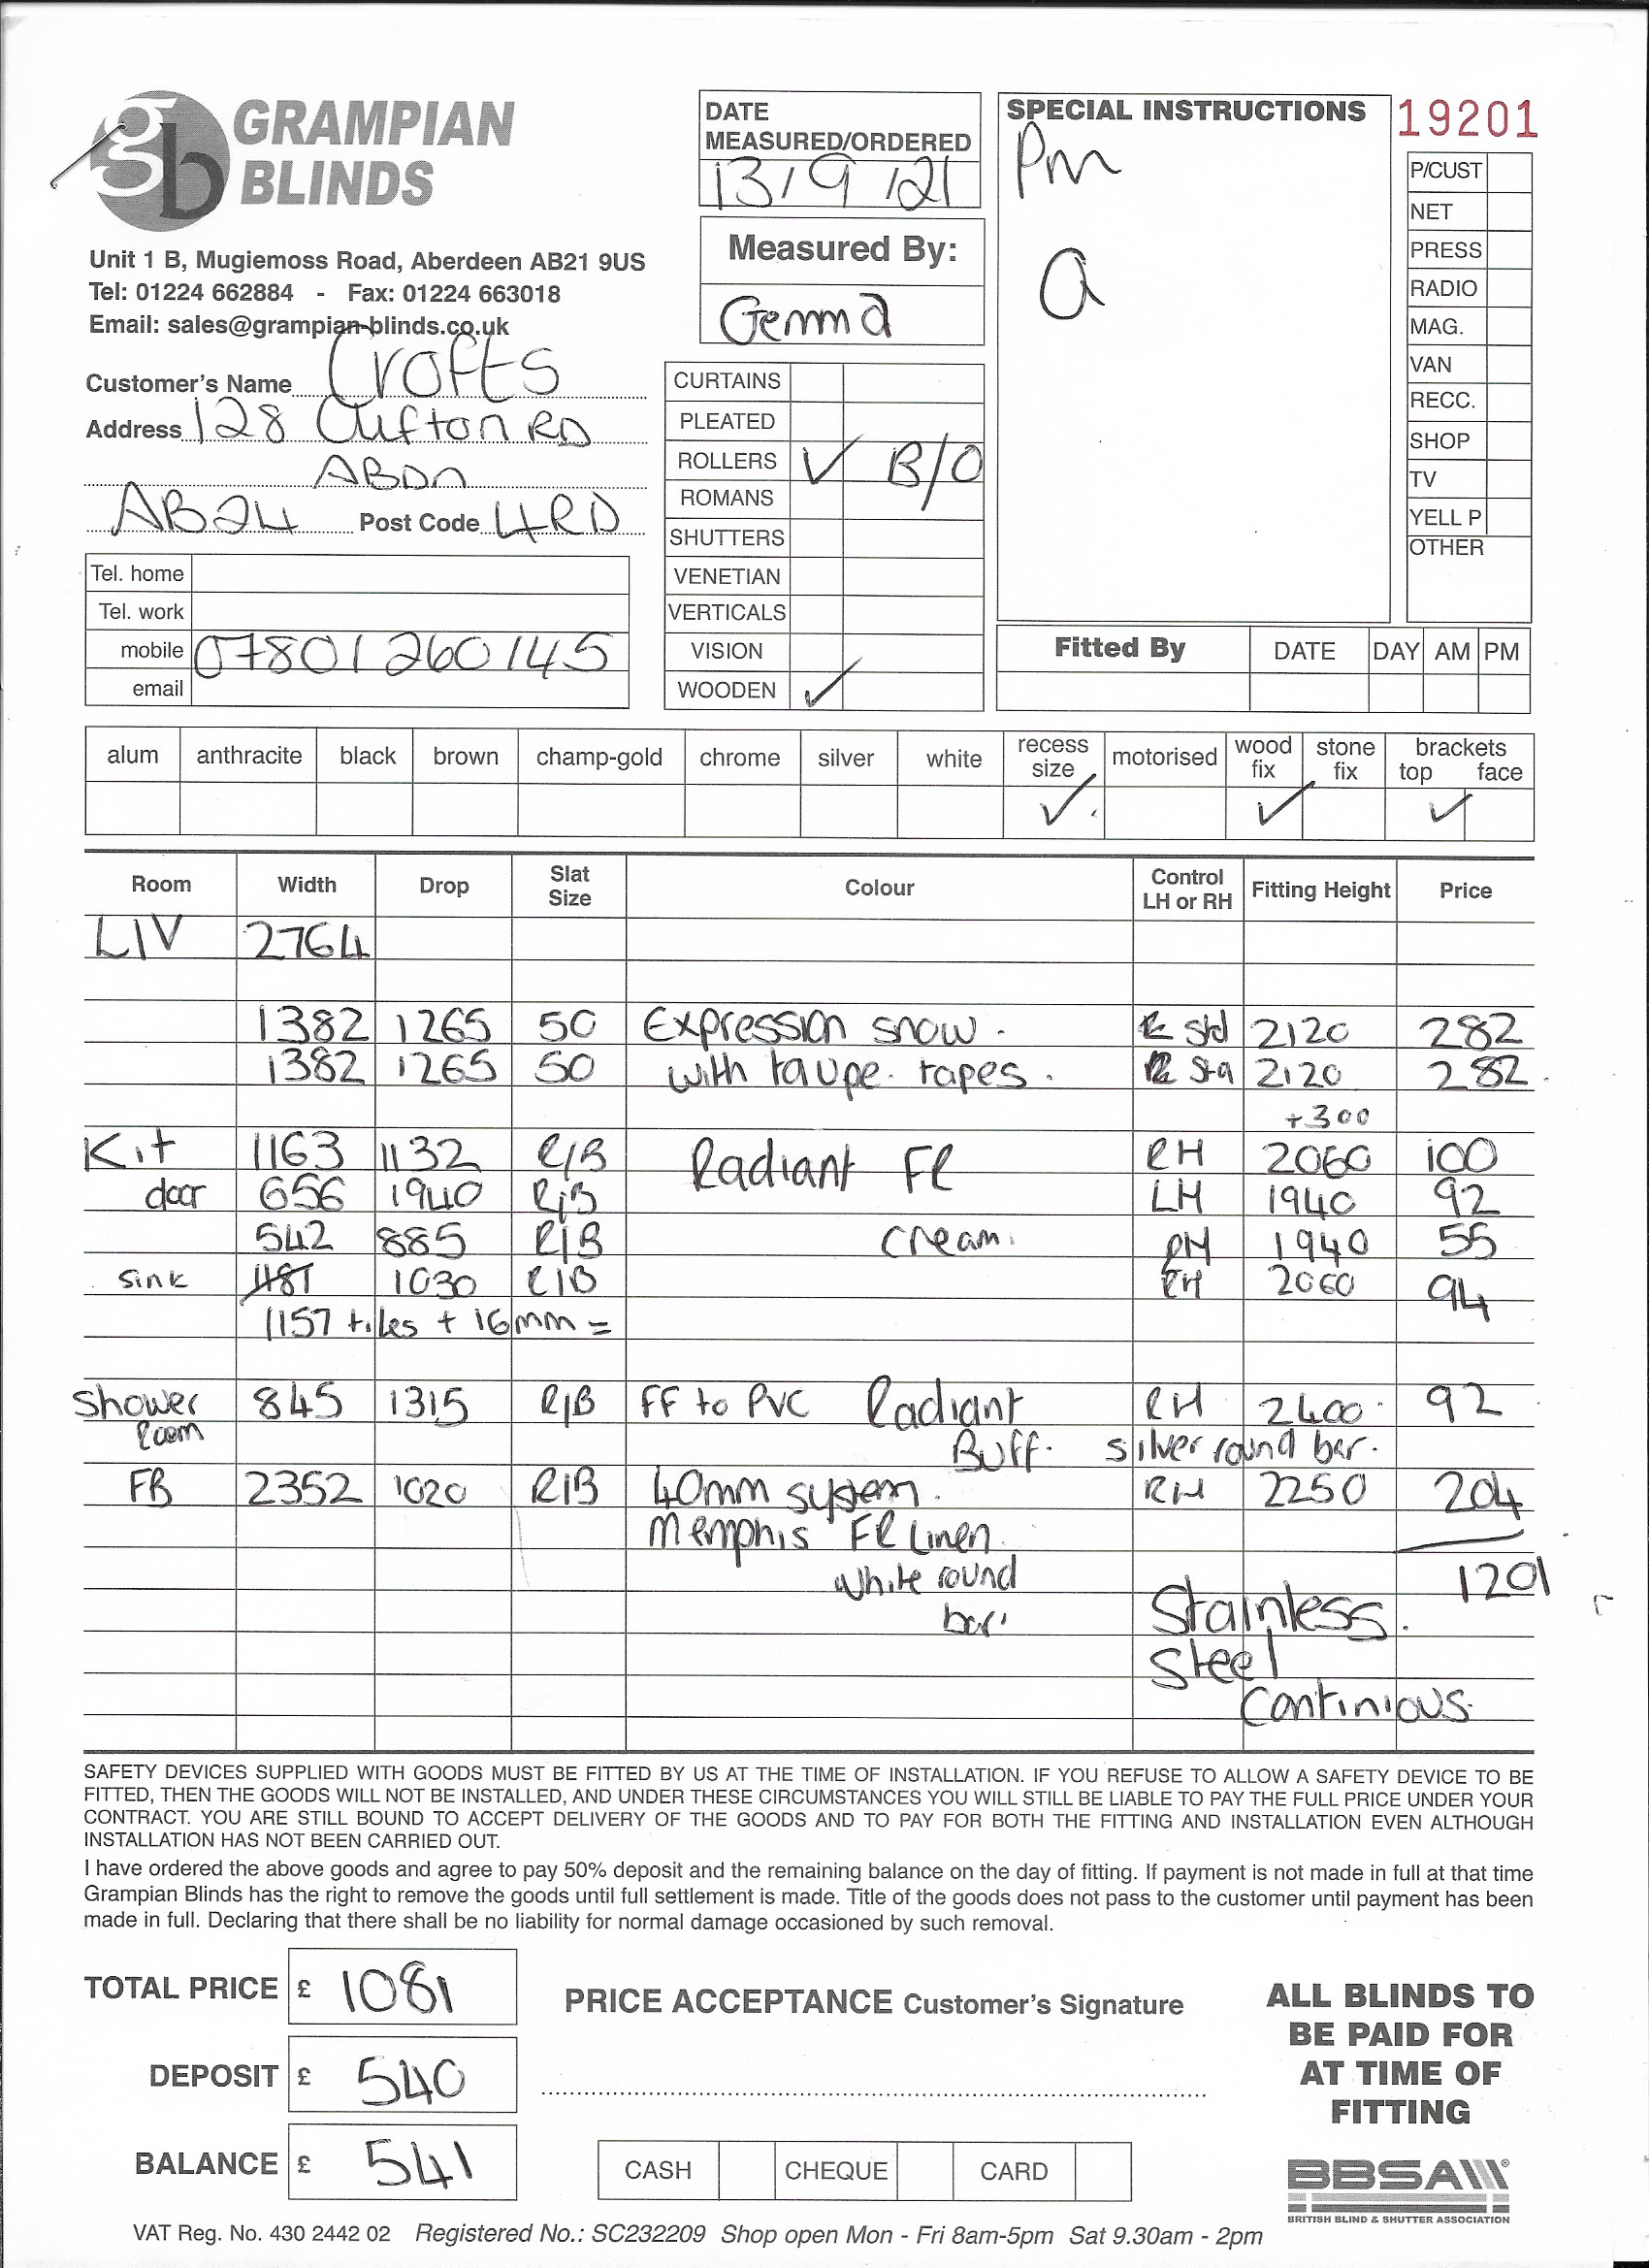 gb GRAMPIAN BLINDS
Unit 1 B, Mugiemoss Road, Aberdeen AB21 9US
Tel: 01224 662884 - Fax: 01224 663018
Email: sales@grampian-blinds.co.uk
Customer's Name Crofts
Address 128 Clifton RD
ABDN
AB24 Post Code 4RD
Tel. home
Tel. work
mobile 07801260145
email
DATE
MEASURED/ORDERED
13/9/21
Measured By:
Gemma
CURTAINS
PLEATED
ROLLERS ✓ B/O
ROMANS
SHUTTERS
VENETIAN
VERTICALS
VISION
WOODEN ✓
SPECIAL INSTRUCTIONS
Pm
a
19201
P/CUST
NET
PRESS
RADIO
MAG.
VAN
RECC.
SHOP
TV
YELL P
OTHER
Fitted By DATE DAY AM PM
alum anthracite black brown champ-gold chrome silver white recess size motorised wood fix stone fix brackets top face
✓ ✓ ✓
Room Width Drop Slat Size Colour Control LH or RH Fitting Height Price
LIV 2764
1382 1265 50 Expression snow. std 2120 282
1382 1265 50 with taupe tapes. std 2120 282
+300
Kit 1163 1132 R/B Radiant FR RH 2060 100
door 656 1940 R/B LH 1940 92
542 885 R/B cream. RH 1940 55
sink 1181 1030 R/B RH 2060 94
1157 tiles + 16mm =
Shower 845 1315 R/B FF to PVC Radiant RH 2400 92
Room Buff. silver round bar.
FB 2352 1020 R/B 40mm system. RH 2250 204
Memphis FR Linen
White round 1201
bar. Stainless.
Steel
Continious.
SAFETY DEVICES SUPPLIED WITH GOODS MUST BE FITTED BY US AT THE TIME OF INSTALLATION. IF YOU REFUSE TO ALLOW A SAFETY DEVICE TO BE
FITTED, THEN THE GOODS WILL NOT BE INSTALLED, AND UNDER THESE CIRCUMSTANCES YOU WILL STILL BE LIABLE TO PAY THE FULL PRICE UNDER YOUR
CONTRACT. YOU ARE STILL BOUND TO ACCEPT DELIVERY OF THE GOODS AND TO PAY FOR BOTH THE FITTING AND INSTALLATION EVEN ALTHOUGH
INSTALLATION HAS NOT BEEN CARRIED OUT.
I have ordered the above goods and agree to pay 50% deposit and the remaining balance on the day of fitting. If payment is not made in full at that time
Grampian Blinds has the right to remove the goods until full settlement is made. Title of the goods does not pass to the customer until payment has been
made in full. Declaring that there shall be no liability for normal damage occasioned by such removal.
TOTAL PRICE £ 1081
DEPOSIT £ 540
BALANCE £ 541
PRICE ACCEPTANCE Customer's Signature
CASH CHEQUE CARD
ALL BLINDS TO
BE PAID FOR
AT TIME OF
FITTING
BBSA
BRITISH BLIND & SHUTTER ASSOCIATION
VAT Reg. No. 430 2442 02 Registered No.: SC232209 Shop open Mon - Fri 8am-5pm Sat 9.30am - 2pm